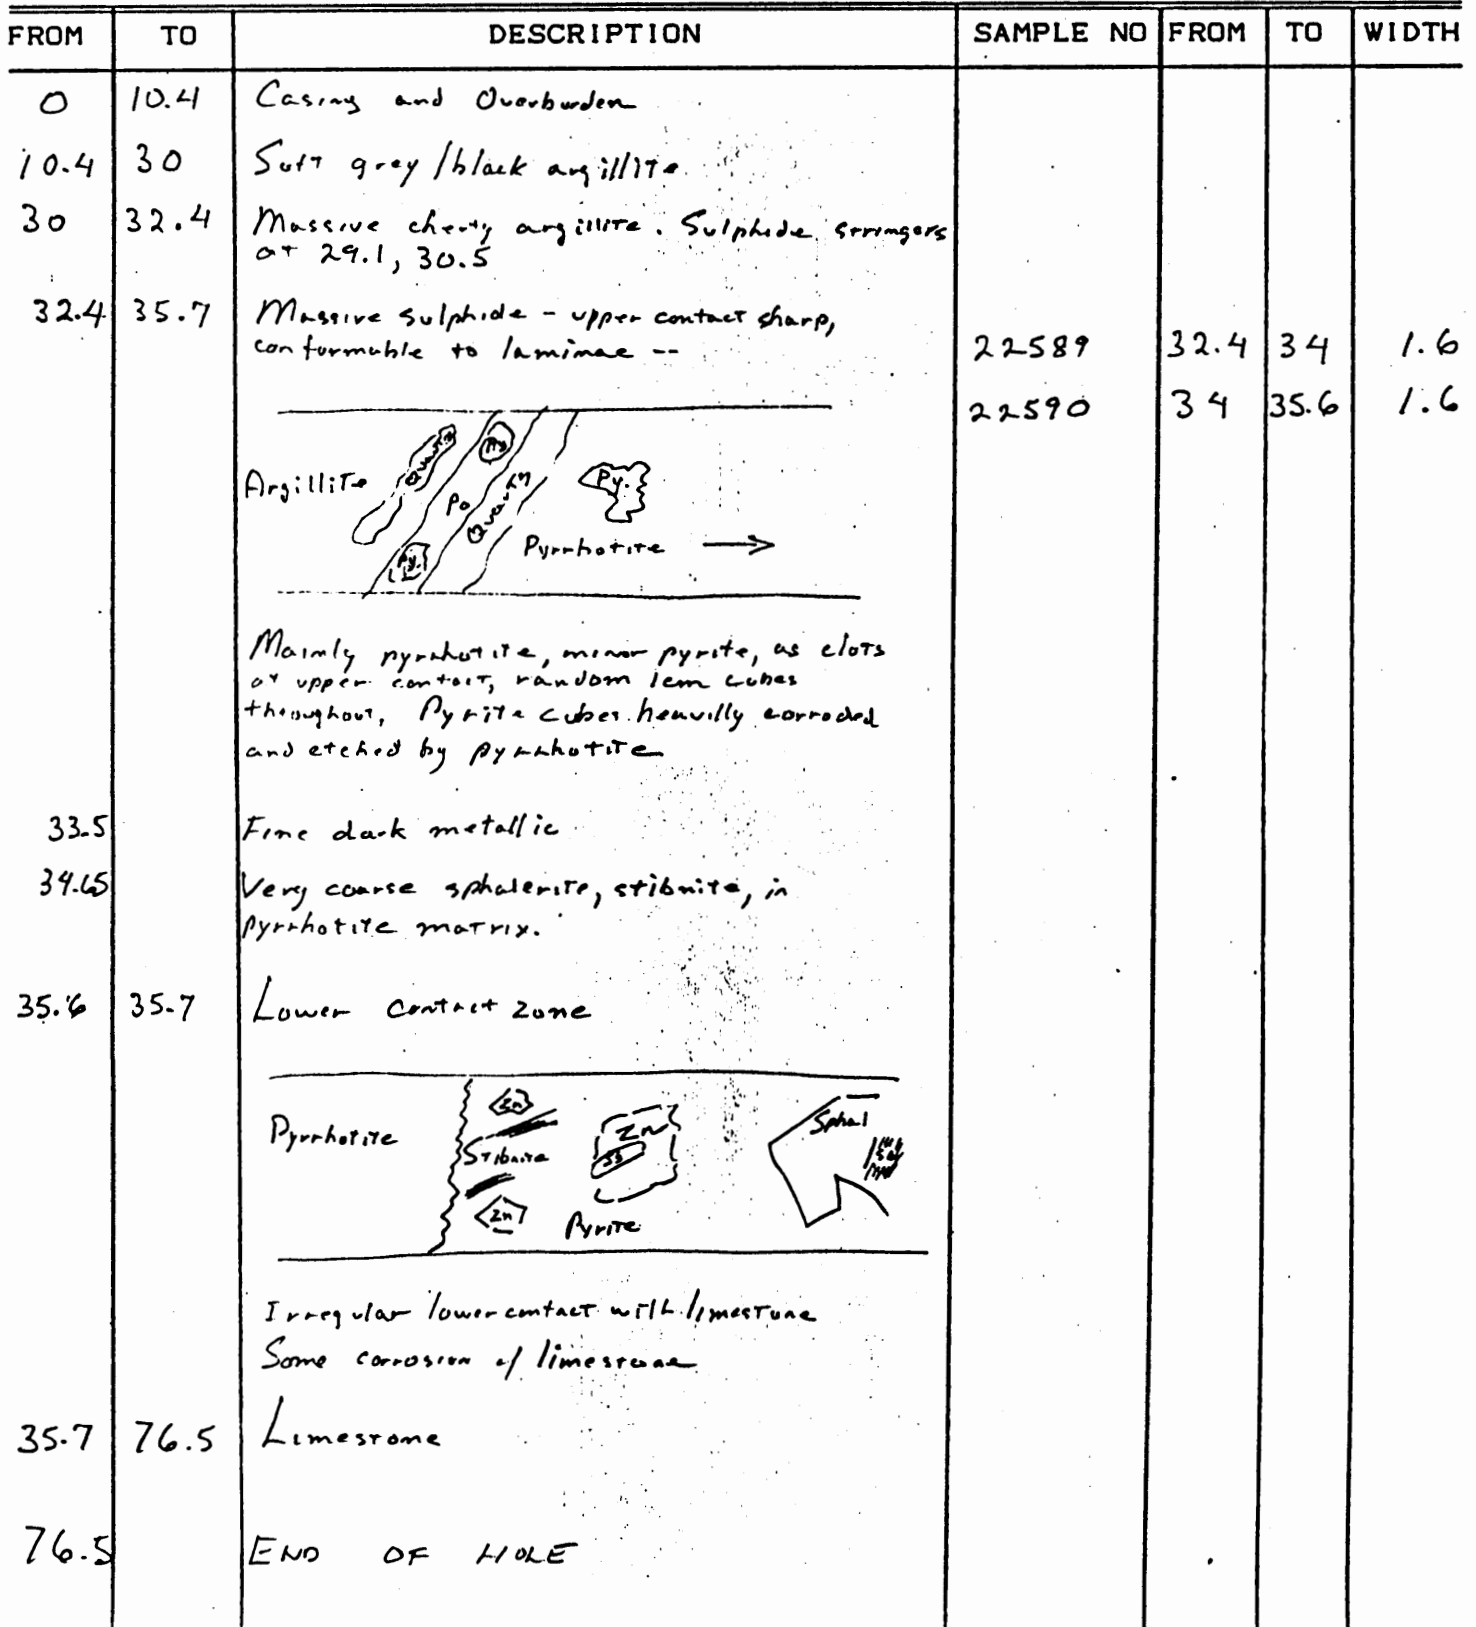 FROM TO DESCRIPTION SAMPLE NO FROM TO WIDTH
0 10.4 Casing and Overburden
10.4 30 Soft grey/black argillite
30 32.4 Massive cherty argillite. Sulphide stringers
at 29.1, 30.5
32.4 35.7 Massive sulphide - upper contact sharp,
conformable to laminae --
22589 32.4 34 1.6
22590 34 35.6 1.6
Quartz Py
Argillite Po Quartz Py.
Py. Pyrrhotite
Mainly pyrrhotite, minor pyrite, as clots
at upper contact, random 1cm cubes
throughout, Pyrite cubes heavilly corroded
and etched by pyrrhotite
33.5 Fine dark metallic
34.65 Very coarse sphalerite, stibnite, in
pyrrhotite matrix.
35.6 35.7 Lower contact zone
Zn Sphal
Pyrrhotite Stibnite Zn
Zn Pyrite
Irregular lower contact with limestone
Some corrosion of limestone
35.7 76.5 Limestone
76.5 END OF HOLE